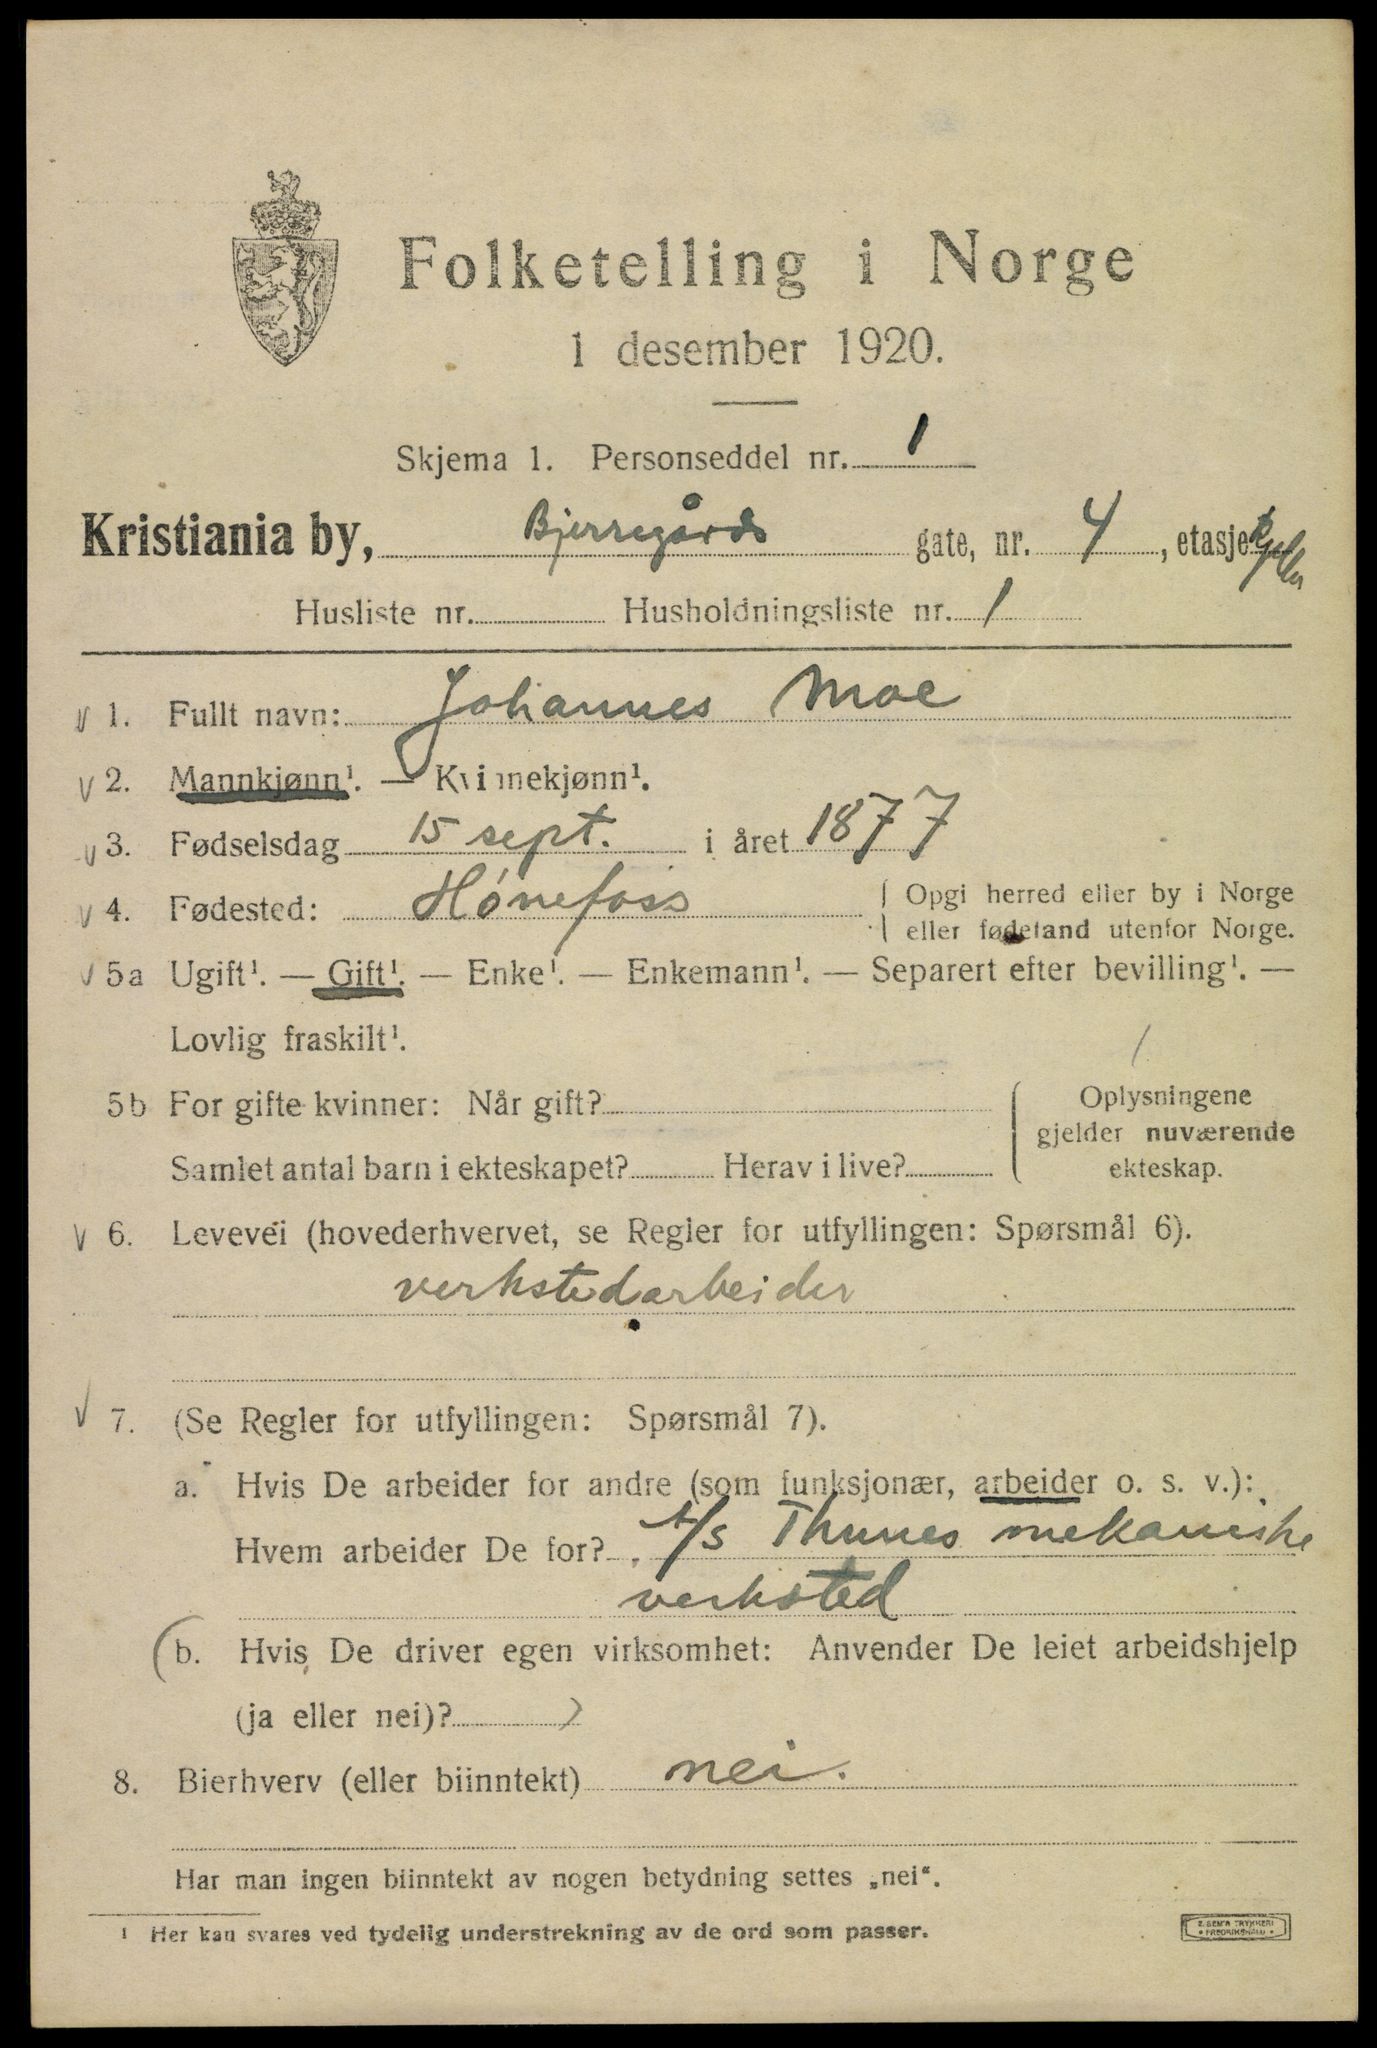 Folketelling i Norge
1 desember 1920.
Skjema 1. Personseddel nr. 1
Kristiania by, Bjerregårds gate, nr. 4, etasje kjeller
Husliste nr. Husholdningsliste nr. 1
v 1. Fullt navn: Johannes Moe
v 2. Mannkjønn¹. — Kvinnekjønn¹.
v 3. Fødselsdag 15 sept. i året 1877
v 4. Fødested: Hønefoss { Opgi herred eller by i Norge
eller fødeland utenfor Norge.
v 5a Ugift¹. — Gift¹. — Enke¹. — Enkemann¹. — Separert efter bevilling¹. —
Lovlig fraskilt¹.
5b For gifte kvinner: Når gift? { Oplysningene
gjelder nuværende
Samlet antal barn i ekteskapet? Herav i live? ekteskap.
v 6. Levevei (hovederhvervet, se Regler for utfyllingen: Spørsmål 6).
verkstedarbeider
v 7. (Se Regler for utfyllingen: Spørsmål 7).
a. Hvis De arbeider for andre (som funksjonær, arbeider o. s. v.):
Hvem arbeider De for? A/S Thunes mekaniske
verksted
(b. Hvis De driver egen virksomhet: Anvender De leiet arbeidshjelp
(ja eller nei)? )
8. Bierhverv (eller biinntekt) nei.
Har man ingen biinntekt av nogen betydning settes „nei“.
¹ Her kan svares ved tydelig understrekning av de ord som passer.
E. SEM'S TRYKKERI
• FREDRIKSHALD •